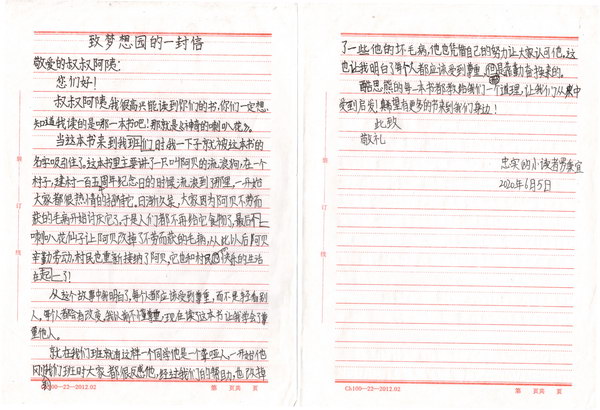 致梦想园的一封信
敬爱的叔叔阿姨:
您们好!
叔叔阿姨,我很高兴能读到你们的书,你们一定想
知道我读的是哪一本书吧!那就是《神奇的喇叭花》。
当这本书来到我们时,我一下子就被这本书的
名字吸引住了。这本书里主要讲了一只叫阿贝的流浪狗,在一个
村子,建村一百五周年纪念日的时候流浪到了那里,一开始
大家都很热情的招待它,日渐久葽,大家因为阿贝不劳而
获的毛病开始讨厌它了,于是人们都不再给它食物了,最后
喇叭花仙子让阿贝改掉了不劳而获的毛病,从此以后阿贝
辛勤劳动,村民也重新接纳了阿贝,它也和村民快乐的生活
在起了!
从这个故事中我明白了,每个人都应该受到尊重,而不是轻看别
人,每个人都会有改变,我以前不懂尊重,现在读了这本书让我学会了尊
重他人。
就在我们班就有这样一个同学他是一个聋哑人,一开始他
时大家都很反感他,经过我们的帮助,他改掉
了一些他的坏毛病,他也凭借自己的努力让大家认可他。这
也让我明白了每个人都应该受到尊重,但是靠勤奋换来的。
酷思熊的每一本书都教给我们一个道理,让我们从中
受到启发!希望有更多的书来到我们身边!
此致
敬礼
忠实的小读者
2020年6月5日
Ch100-22-2012.02 第 页共 页
Ch100-22-2012.02 第 页共 页